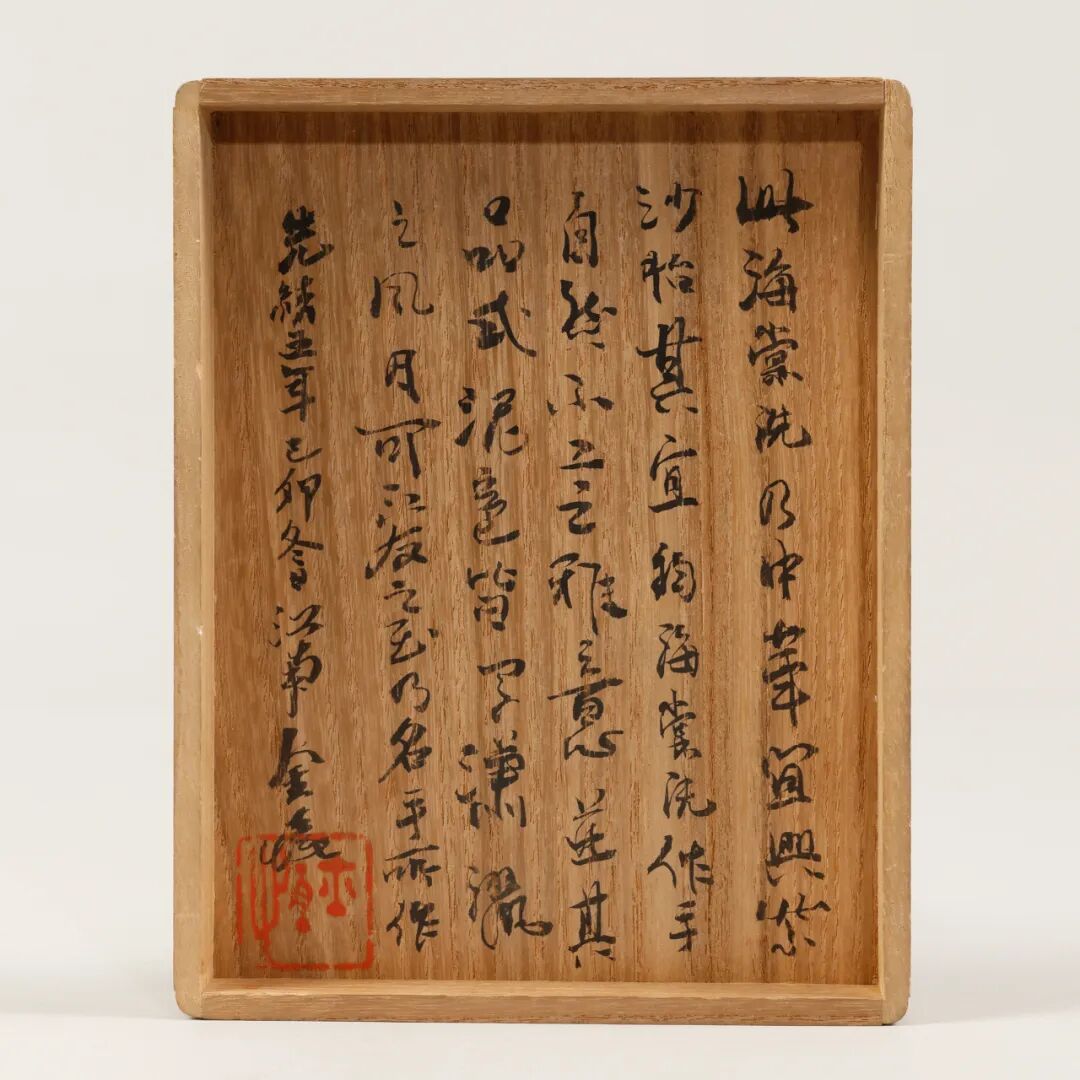 此海棠洗乃中華宜興紫
沙胎其宜鈞海棠洗作手
自然不工之雅意并其
口品式泥色皆是瀟灑
之風月可以友之至乃名手所作
光緒五年己卯冬江南金